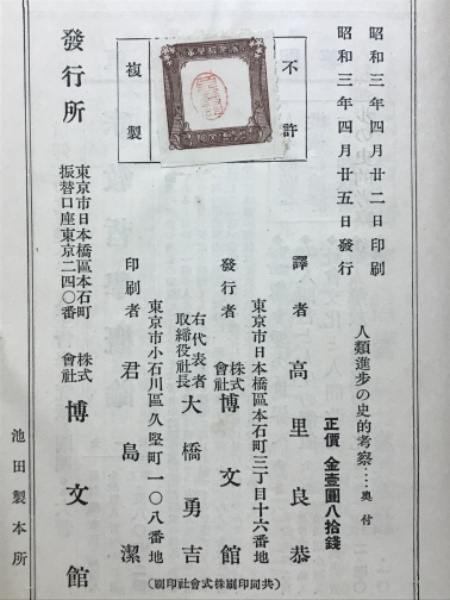 昭和三年四月廿二日印刷
昭和三年四月廿五日發行
人類進步の史的考察…奧付
正價 金壹圓八拾錢
不許
複製
譯者 高里良恭
東京市日本橋區本石町三丁目十六番地
發行者 株式會社 博文館
右代表者
取締役社長 大橋勇吉
東京市小石川區久堅町一〇八番地
印刷者 君島潔
(共同印刷株式會社印刷)
發行所
東京市日本橋區本石町
振替口座東京二四〇番
株式會社 博文館
池田製本所